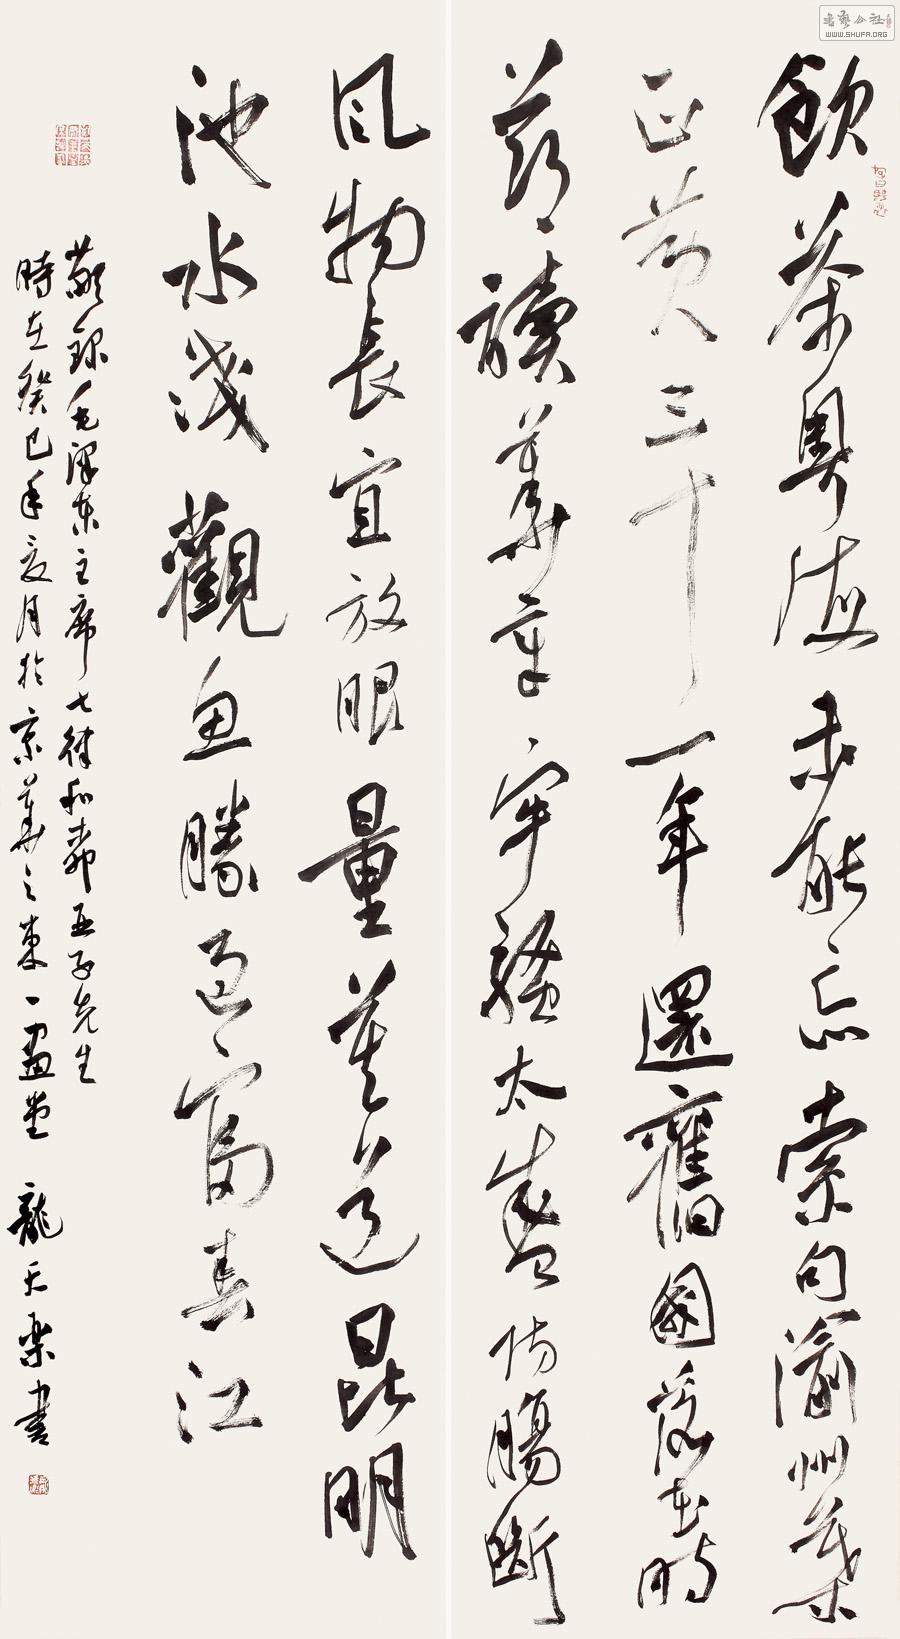 飲茶粵海未能忘索句渝州葉
正黃三十一年還舊國落花時
節讀華章牢騷太盛防腸斷
風物長宜放眼量莫道昆明
池水淺觀魚勝過富春江
敬録毛澤東主席七律和柳亞子先生
時在癸巳年夏月於京華之東一畫堂 龍天樂書
書藝公社
WWW.SHUFA.ORG